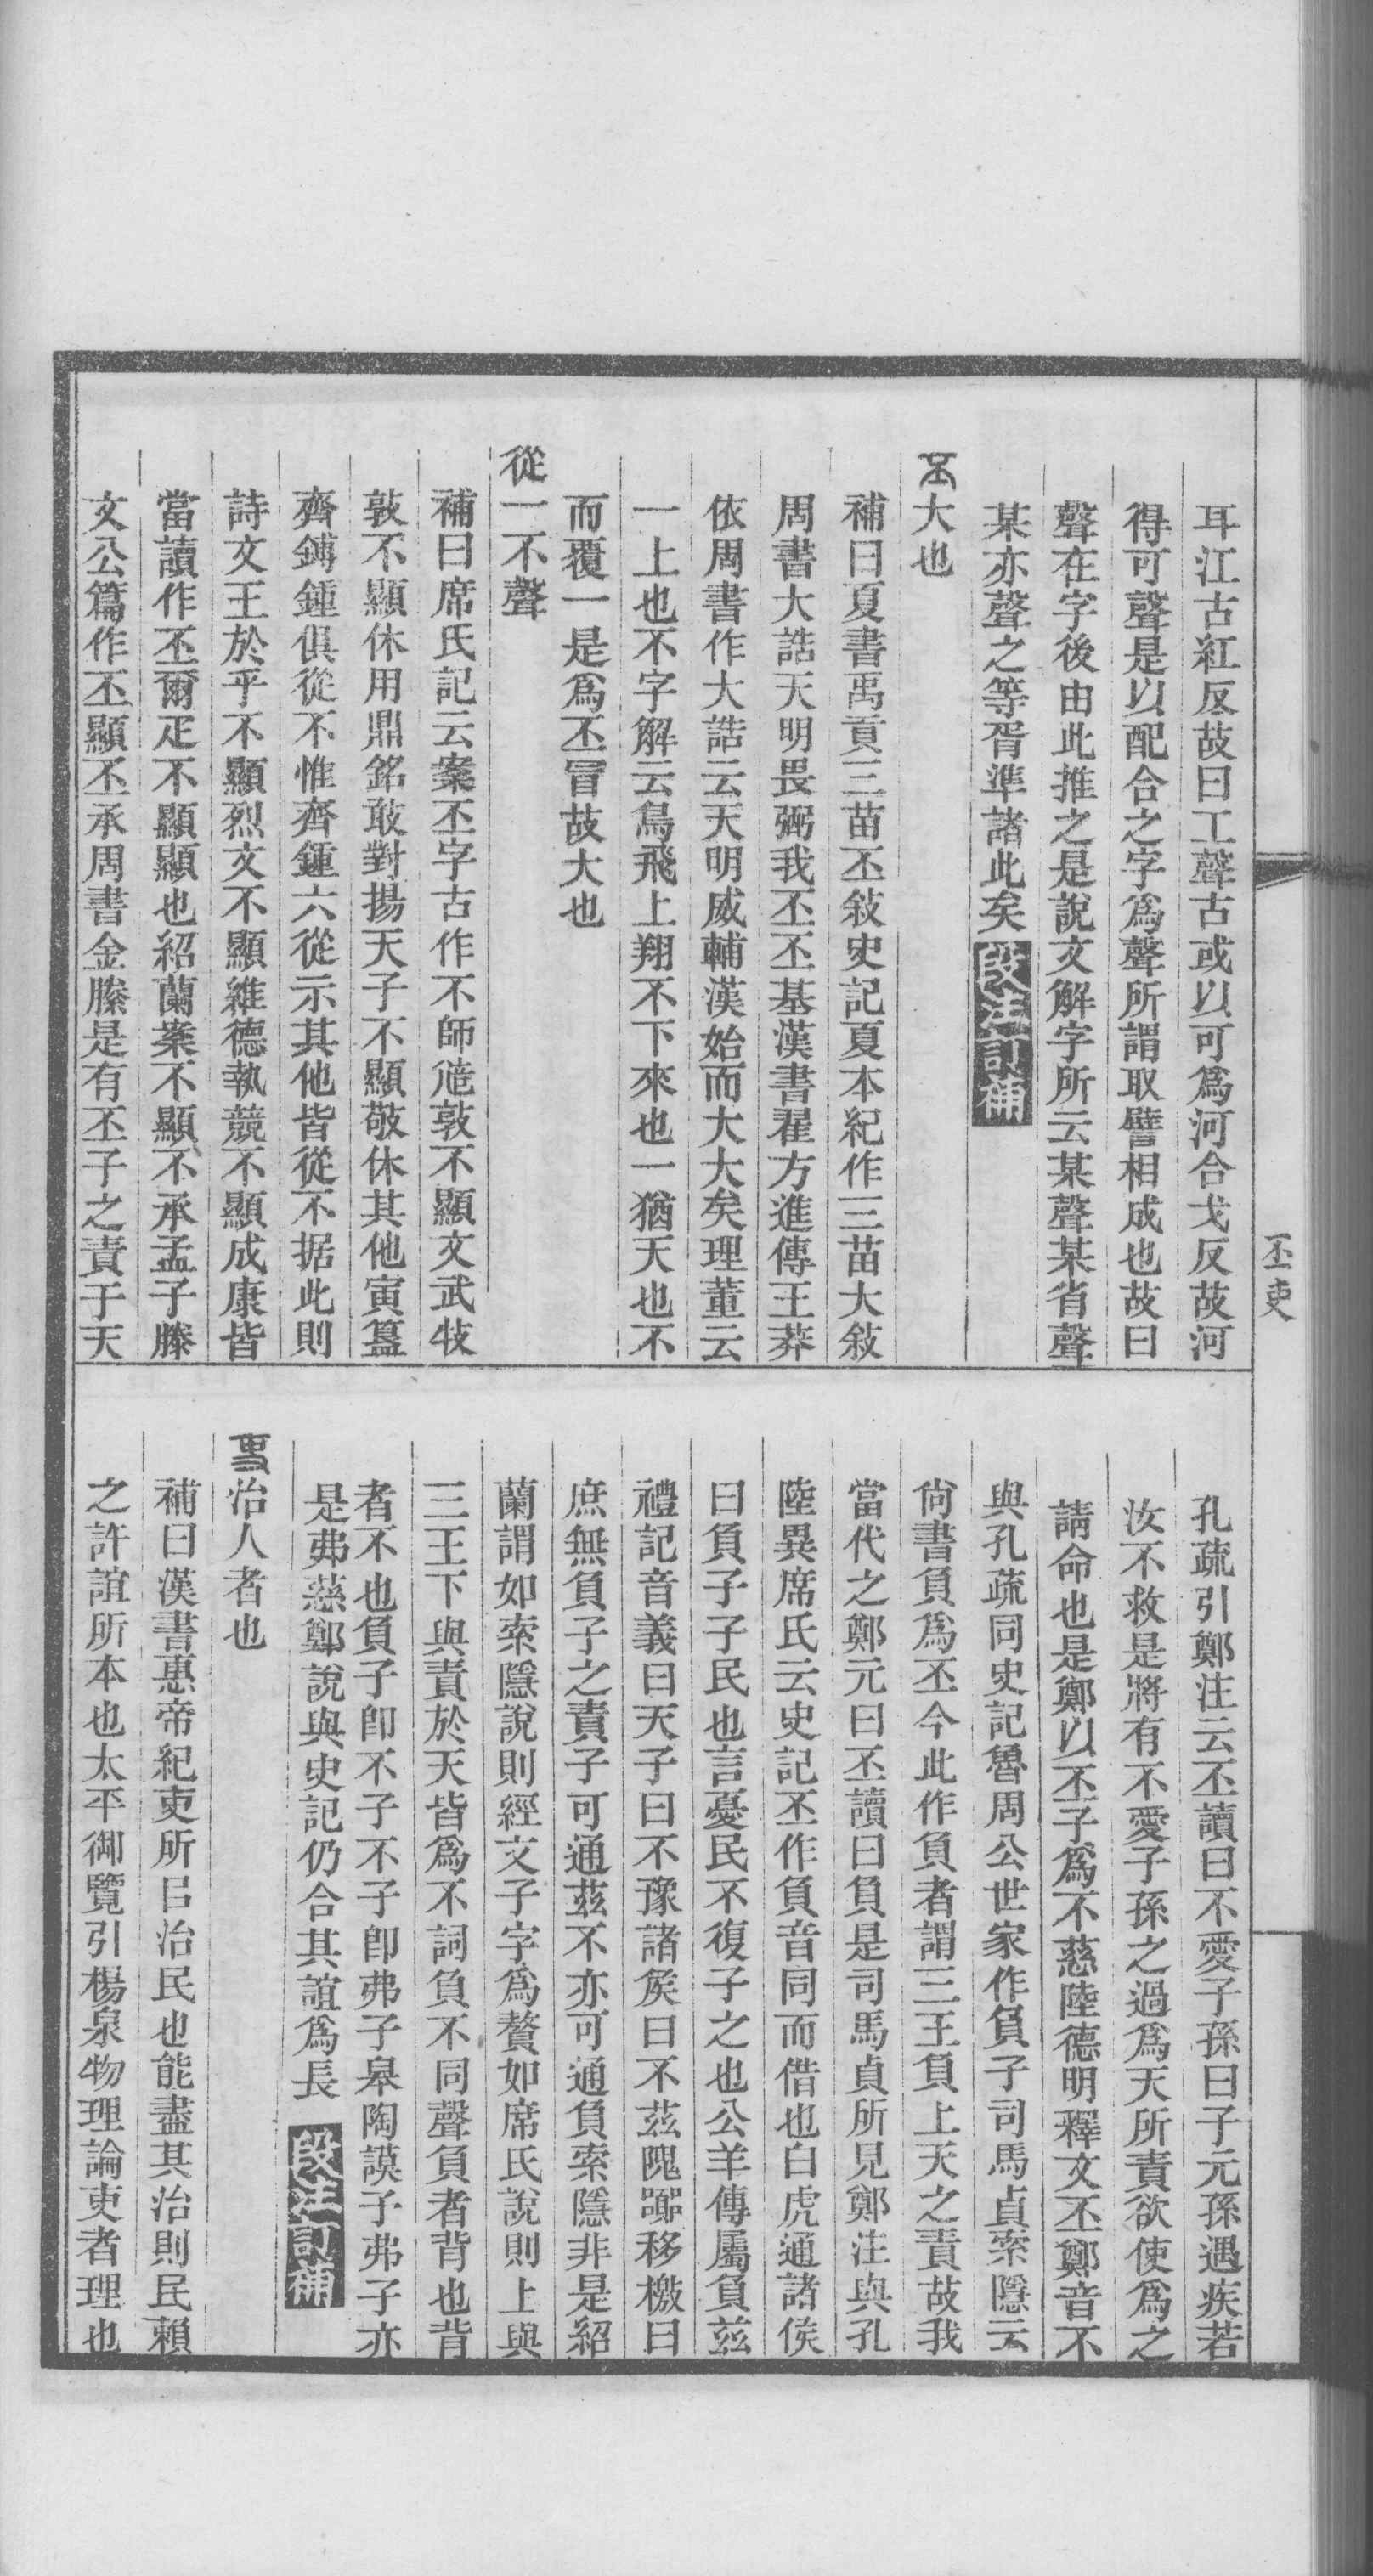 耳江古紅反故曰工聲古或以可爲河合戈反故河
得可聲是以配合之字爲聲所謂取譬相成也故曰
聲在字後由此推之是說文解字所云某聲某省聲
某亦聲之等胥準諸此矣段注訂補
大也
補曰夏書禹貢三苗丕敍史記夏本紀作三苗大敍
周書大誥天明畏弼我丕丕基漢書翟方進傳王莽
依周書作大誥云天明威輔漢始而大大矣理董云
一上也不字解云鳥飛上翔不下來也一猶天也不
而覆一是爲丕冒故大也
從一不聲
補曰席氏記云案丕字古作不師𩛥敦不顯文武牧
敦不顯休用鼎銘敢對揚天子不顯敬休其他寅簋
齊鎛鍾俱從不惟齊鍾六從示其他皆從不据此則
詩文王於乎不顯烈文不顯維德執競不顯成康皆
當讀作丕爾疋不顯顯也紹蘭案不顯不承孟子滕
文公篇作丕顯丕承周書金縢是有丕子之責于天
孔疏引鄭注云丕讀曰不愛子孫曰子元孫遇疾若
汝不救是將有不愛子孫之過爲天所責欲使爲之
請命也是鄭以丕子爲不慈陸德明釋文丕鄭音不
與孔疏同史記魯周公世家作負子司馬貞索隱云
尙書負爲丕今此作負者謂三王負上天之責故我
當代之鄭元曰丕讀曰負是司馬貞所見鄭注與孔
陸異席氏云史記丕作負音同而借也白虎通諸侯
曰負子子民也言憂民不復子之也公羊傳屬負茲
禮記音義曰天子曰不豫諸矦曰不茲隗囂移檄曰
庶無負子之責子可通茲不亦可通負索隱非是紹
蘭謂如索隱說則經文子字爲贅如席氏說則上與
三王下與責於天皆爲不詞負不同聲負者背也背
者不也負子卽不子不子卽弗子皋陶謨子弗子亦
是弗慈鄭說與史記仍合其誼爲長段注訂補
治人者也
補曰漢書惠帝紀吏所㠯治民也能盡其治則民賴
之許誼所本也太平御覽引楊泉物理論吏者理也
丕吏